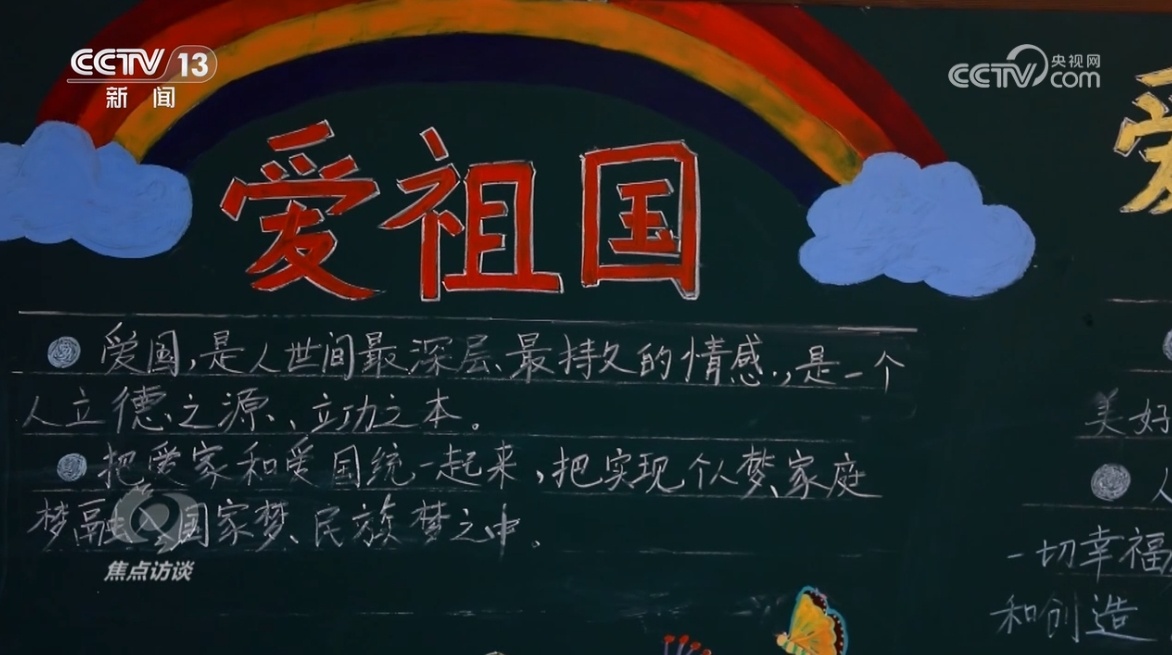 CCTV 13
新闻
央视网
CCTV com
爱祖国
爱国,是人世间最深层、最持久的情感,是一个
人立德之源、立功之本。
把爱家和爱国统一起来,把实现个人梦、家庭
梦融入国家梦、民族梦之中。
焦点访谈
美好
一切幸福
和创造